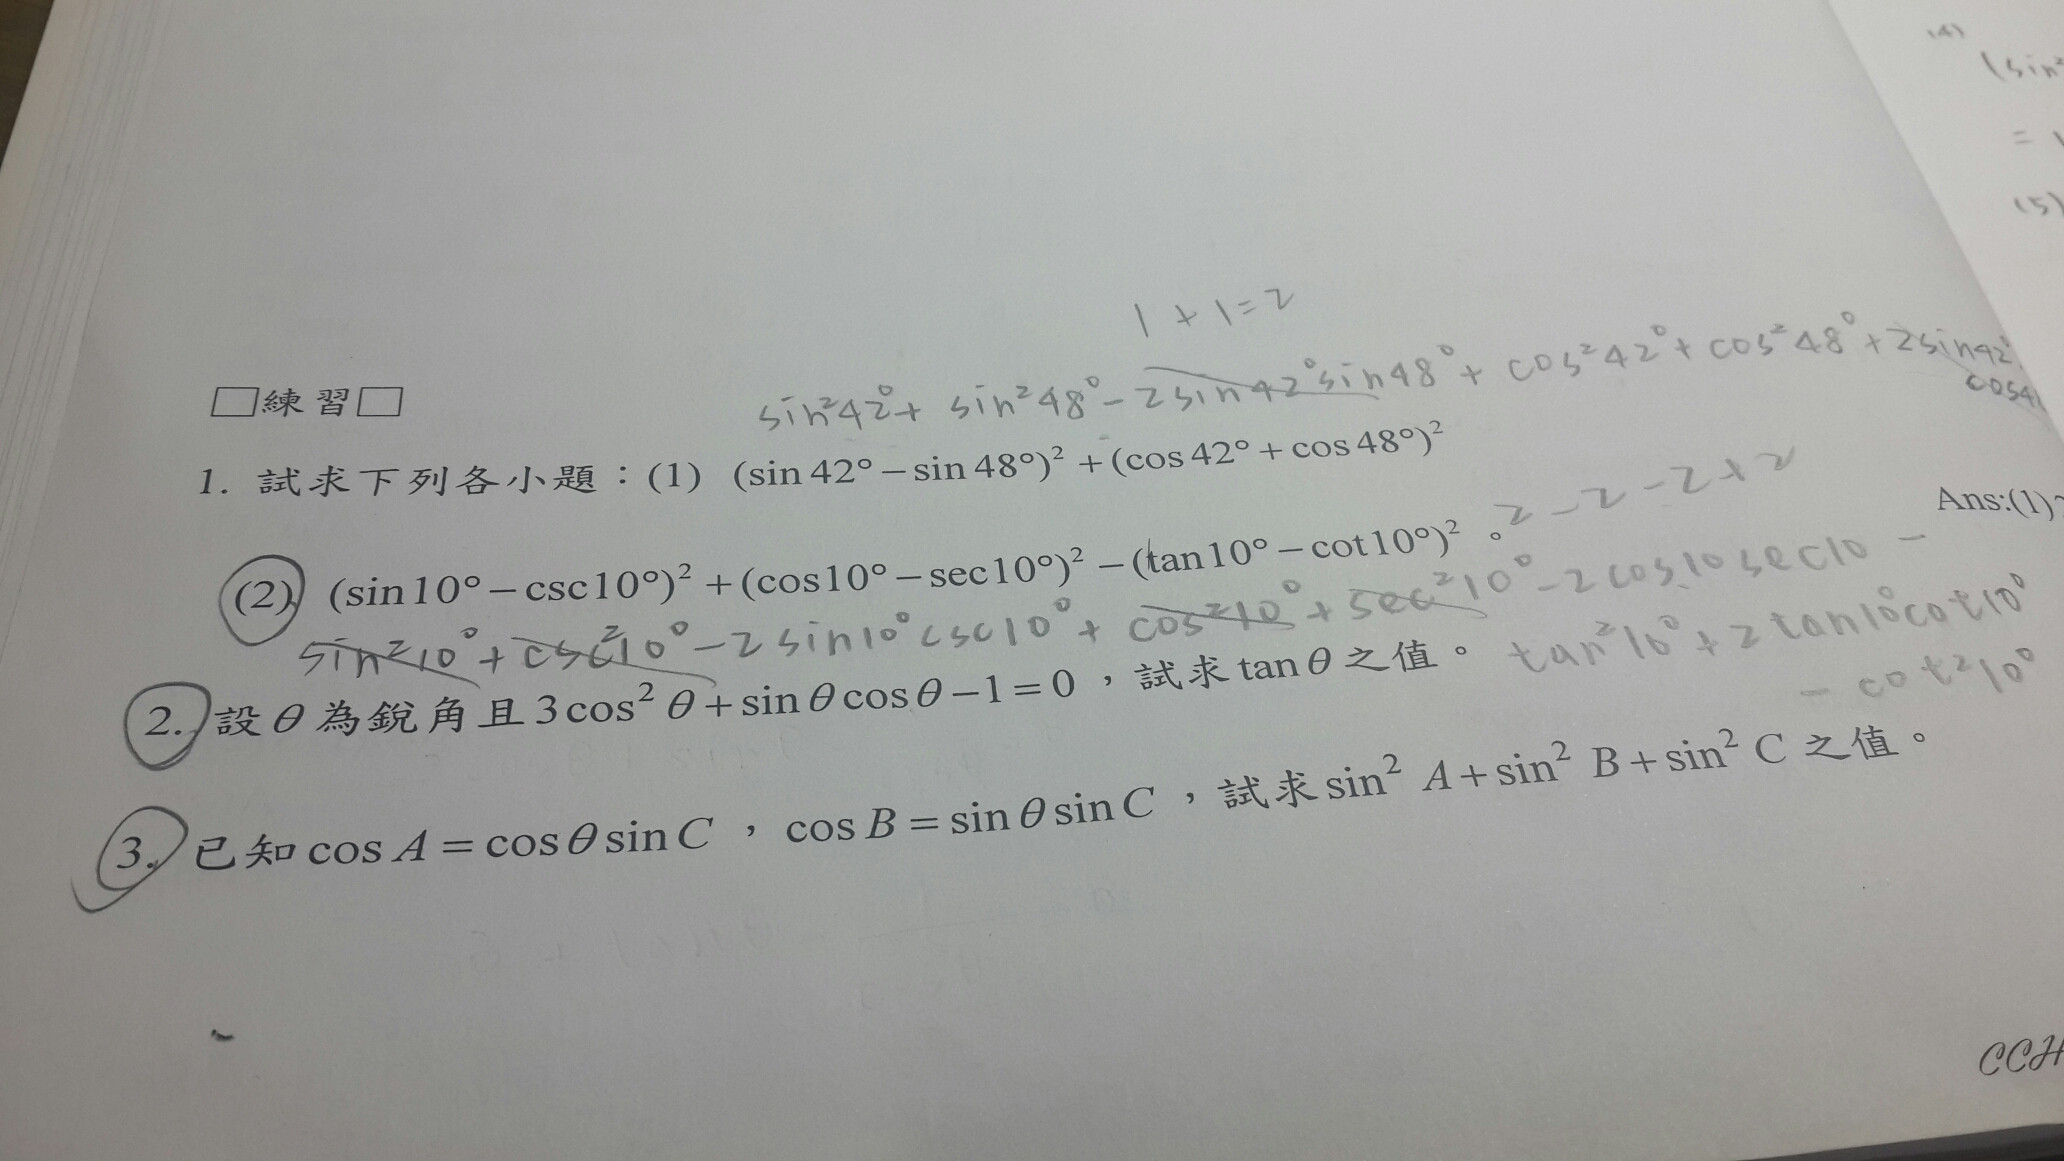 (4)
(sin²
=
(5)
1+1=2
sin²42°+ sin²48°-2sin42°sin48°+cos²42°+cos²48°+2sin42°
□練習□
1. 試求下列各小題：(1) (sin 42°－sin 48°)²＋(cos 42°＋cos 48°)²
2-2-2+2
Ans:(1)
(2) (sin10°－csc10°)²＋(cos10°－sec10°)²－(tan10°－cot10°)² 。
sin²10°+csc²10°-2sin10°csc10°+cos²10°+sec²10°-2cos10sec10-
tan²10°+2tan10°cot10°
-cot²10°
2. 設θ為銳角且3cos²θ＋sinθcosθ－1＝0，試求tanθ之值。
3. 已知cos A＝cosθsin C，cos B＝sinθsin C，試求sin² A＋sin² B＋sin² C 之值。
CCH